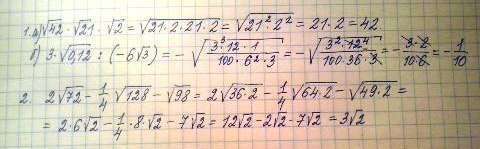 1. а) √42 · √21 · √2 = √(21·2·21·2) = √(21²·2²) = 21·2 = 42
б) 3·√0,12 : (-6√3) = -√((3²·12·1)/(100·6²·3)) = -√((3²·12⁴)/(100·36·3)) = -(3·2)/(10·6) = -1/10
2. 2√72 - 1/4 √128 - √98 = 2√(36·2) - 1/4 √(64·2) - √(49·2) =
= 2·6√2 - 1/4·8·√2 - 7√2 = 12√2 - 2√2 - 7√2 = 3√2